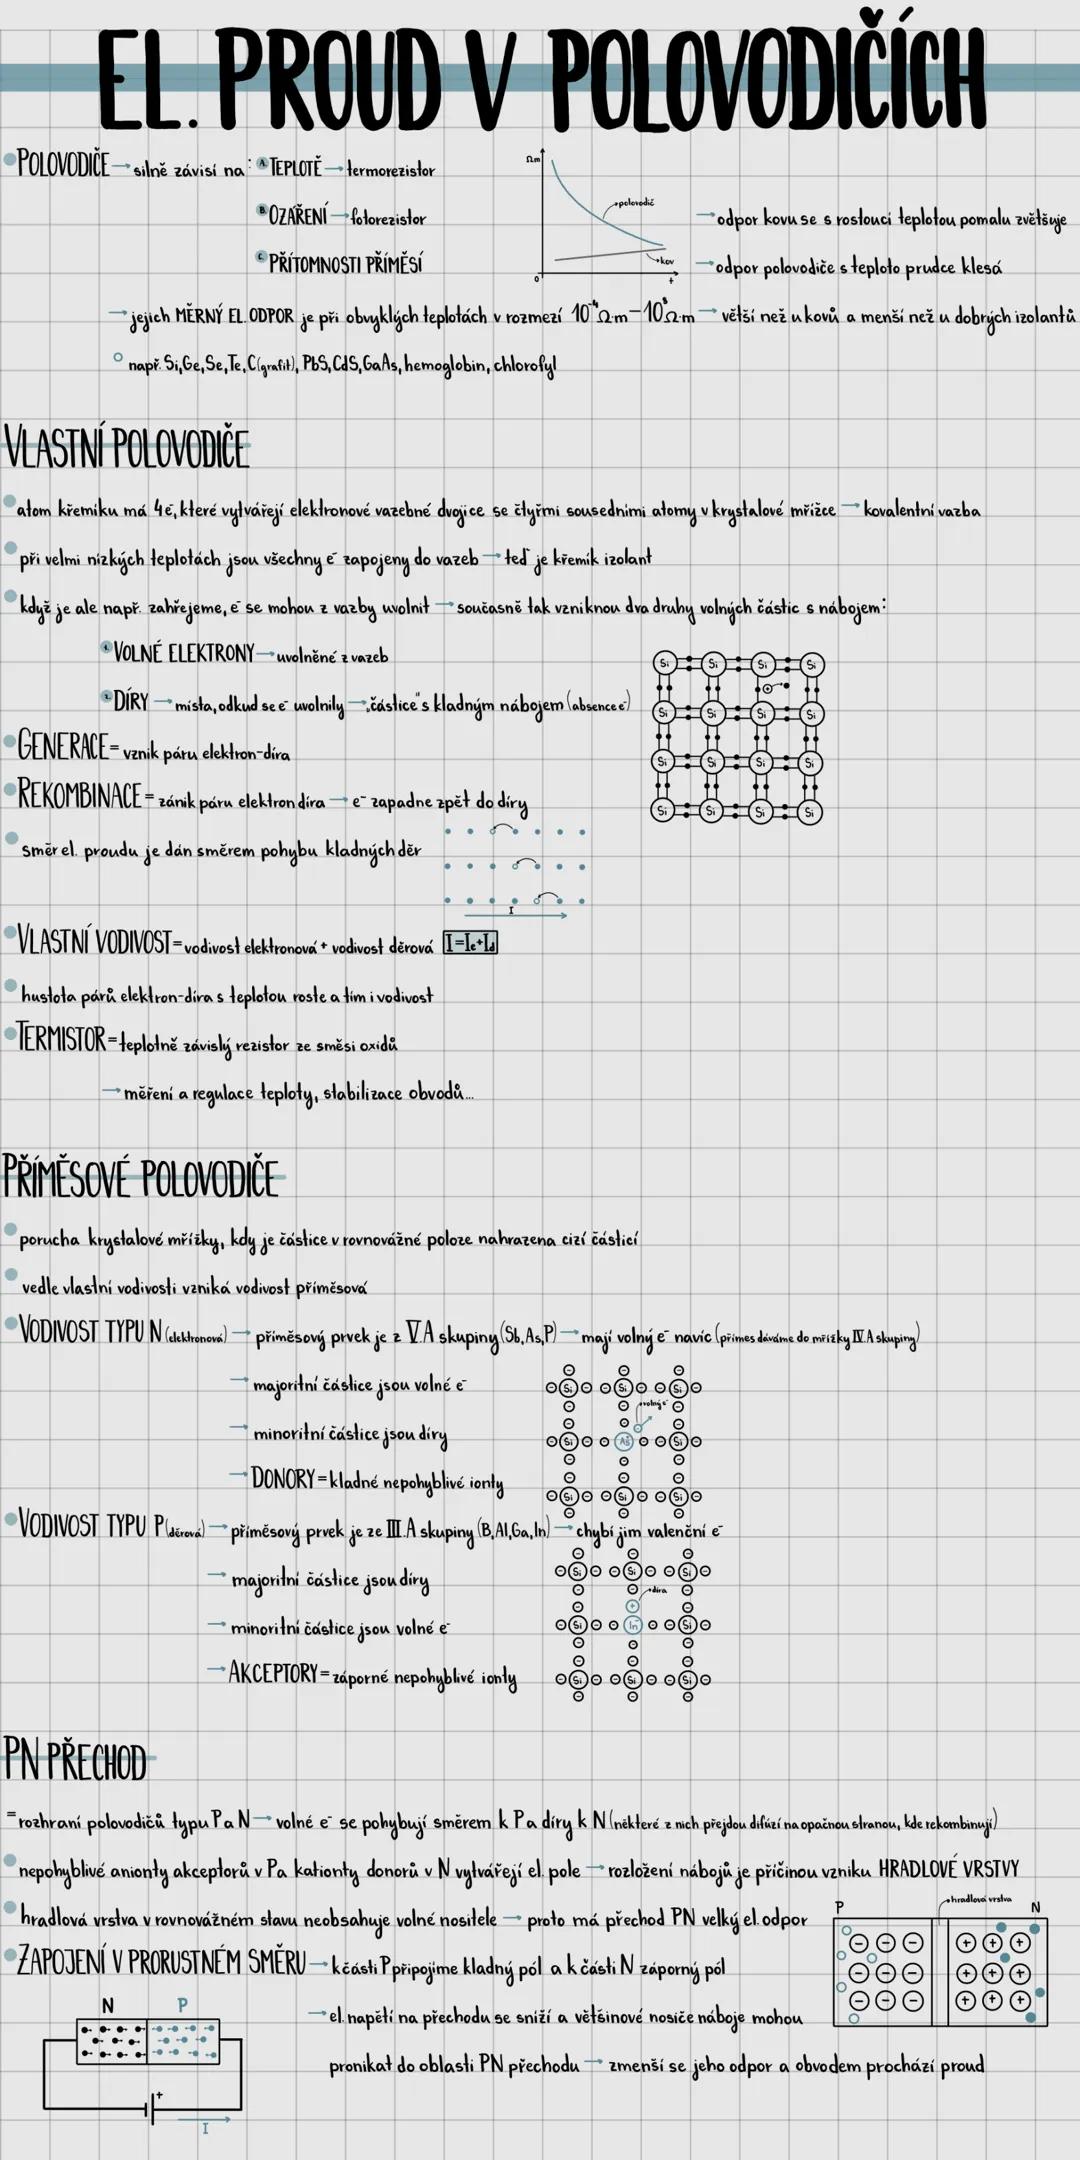 EL. PROUD V POLOVODIČÍCH
POLOVODIČE → silně závisí na: A. TEPLOTĚ → termorezistor
B. OZÁŘENÍ → fotorezistor
C. PŘÍTOMNOSTI PŘÍMĚSÍ
Ωm
polovodič
kov
0
t
→ odpor kovu se s rostoucí teplotou pomalu zvětšuje
→ odpor polovodiče s teploto prudce klesá
→ jejich MĚRNÝ EL. ODPOR je při obvyklých teplotách v rozmezí 10⁻⁴Ω·m – 10⁸Ω·m → větší než u kovů a menší než u dobrých izolantů
např. Si, Ge, Se, Te, C (grafit), PbS, CdS, GaAs, hemoglobin, chlorofyl
VLASTNÍ POLOVODIČE
atom křemíku má 4e⁻, které vytvářejí elektronové vazebné dvojice se čtyřmi sousedními atomy v krystalové mřížce → kovalentní vazba
při velmi nízkých teplotách jsou všechny e⁻ zapojeny do vazeb → teď je křemík izolant
když je ale např. zahřejeme, e⁻ se mohou z vazby uvolnit → současně tak vzniknou dva druhy volných částic s nábojem:
1. VOLNÉ ELEKTRONY → uvolněné z vazeb
2. DÍRY → místa, odkud se e⁻ uvolnily → „částice" s kladným nábojem (absence e⁻)
Si Si Si Si
Si Si Si Si
Si Si Si Si
Si Si Si Si
GENERACE = vznik páru elektron-díra
REKOMBINACE = zánik páru elektron díra → e⁻ zapadne zpět do díry
směr el. proudu je dán směrem pohybu kladných děr
I
VLASTNÍ VODIVOST = vodivost elektronová + vodivost děrová I=Ie+Id
hustota párů elektron-díra s teplotou roste a tím i vodivost
TERMISTOR = teplotně závislý rezistor ze směsi oxidů
→ měření a regulace teploty, stabilizace obvodů...
PŘÍMĚSOVÉ POLOVODIČE
porucha krystalové mřížky, kdy je částice v rovnovážné poloze nahrazena cizí částicí
vedle vlastní vodivosti vzniká vodivost příměsová
VODIVOST TYPU N (elektronová) → příměsový prvek je z V.A skupiny (Sb, As, P) → mají volný e⁻ navíc (přímes dáváme do mřížky IV.A skupiny)
→ majoritní částice jsou volné e⁻
→ minoritní částice jsou díry
→ DONORY = kladné nepohyblivé ionty
Si Si Si
volný e⁻
Si As⁺ Si
Si Si Si
VODIVOST TYPU P (děrová) → příměsový prvek je ze III.A skupiny (B, Al, Ga, In) → chybí jim valenční e⁻
→ majoritní částice jsou díry
→ minoritní částice jsou volné e⁻
→ AKCEPTORY = záporné nepohyblivé ionty
Si Si Si
díra
Si In⁻ Si
Si Si Si
PN PŘECHOD
= rozhraní polovodičů typu P a N → volné e⁻ se pohybují směrem k P a díry k N (některé z nich přejdou difúzí na opačnou stranou, kde rekombinují)
nepohyblivé anionty akceptorů v P a kationty donorů v N vytvářejí el. pole → rozložení nábojů je příčinou vzniku HRADLOVÉ VRSTVY
hradlová vrstva v rovnovážném stavu neobsahuje volné nositele → proto má přechod PN velký el. odpor
P
hradlová vrstva
N
ZAPOJENÍ V PRORUSTNÉM SMĚRU → k části P připojíme kladný pól a k části N záporný pól
→ el. napětí na přechodu se sníží a většinové nosiče náboje mohou
pronikat do oblasti PN přechodu → zmenší se jeho odpor a obvodem prochází proud
N P
+
I